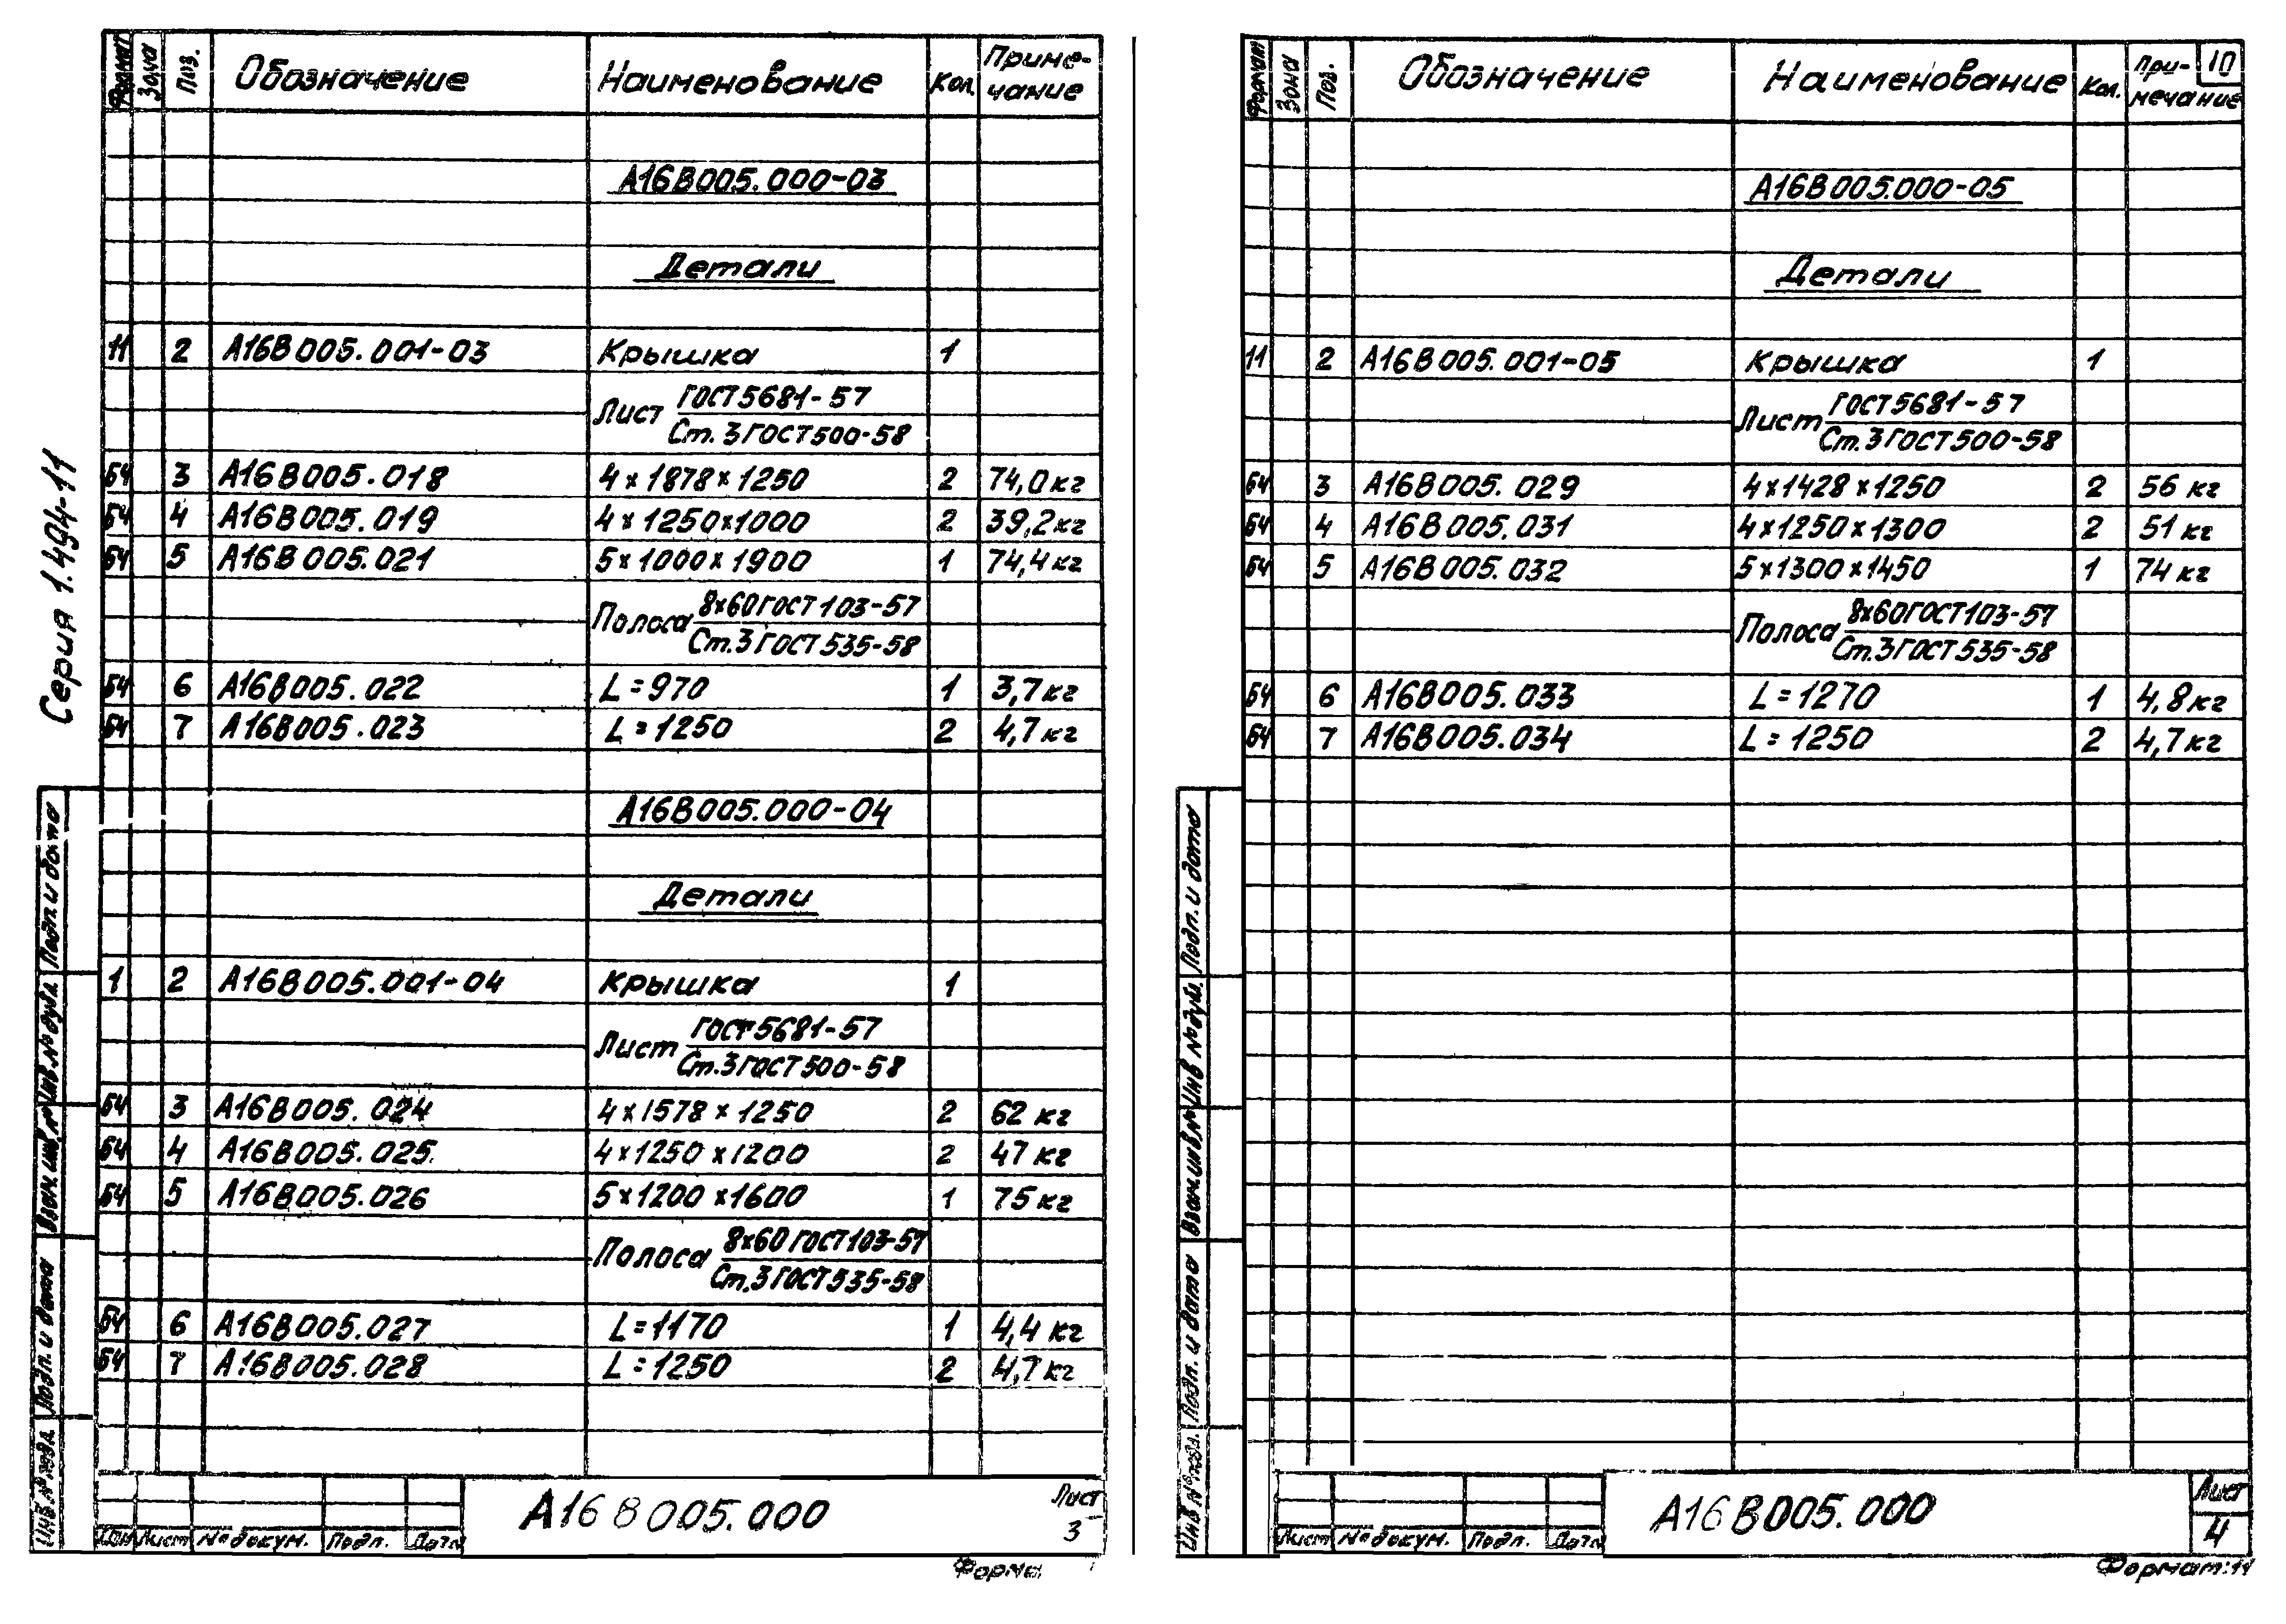 Серия 1.494-11
Формат Зона Поз. Обозначение Наименование Кол. Приме-
чание
А16В005.000-03
Детали
11 2 А16В005.001-03 Крышка 1
Лист ГОСТ5681-57
Ст.3ГОСТ500-58
БЧ 3 А16В005.018 4×1878×1250 2 74,0кг
БЧ 4 А16В005.019 4×1250×1000 2 39,2кг
БЧ 5 А16В005.021 5×1000×1900 1 74,4кг
Полоса 8х60ГОСТ103-57
Ст.3ГОСТ535-58
БЧ 6 А16В005.022 L=970 1 3,7кг
БЧ 7 А16В005.023 L=1250 2 4,7кг
А16В005.000-04
Детали
1 2 А16В005.001-04 Крышка 1
Лист ГОСТ5681-57
Ст.3ГОСТ500-58
БЧ 3 А16В005.024 4×1578×1250 2 62 кг
БЧ 4 А16В005.025 4×1250×1200 2 47 кг
БЧ 5 А16В005.026 5×1200×1600 1 75 кг
Полоса 8х60 ГОСТ103-57
Ст.3ГОСТ535-58
БЧ 6 А16В005.027 L=1170 1 4,4 кг
БЧ 7 А16В005.028 L=1250 2 4,7 кг
Подп. и дата
Инв.№ дубл.
Взам. инв.№
Подп. и дата
Инв.№ подл.
Лист № докум. Подп. Дата
А16В005.000
Лист
3
Форма
Формат Зона Поз. Обозначение Наименование Кол. При-
мечание
10
А16В005.000-05
Детали
11 2 А16В005.001-05 Крышка 1
Лист ГОСТ5681-57
Ст.3ГОСТ500-58
БЧ 3 А16В005.029 4×1428×1250 2 56 кг
БЧ 4 А16В005.031 4×1250×1300 2 51 кг
БЧ 5 А16В005.032 5×1300×1450 1 74 кг
Полоса 8х60ГОСТ103-57
Ст.3ГОСТ535-58
БЧ 6 А16В005.033 L=1270 1 4,8кг
БЧ 7 А16В005.034 L=1250 2 4,7кг
Подп. и дата
Инв № дубл.
Взам.инв.№
Подп. и дата
Инв № подл.
Лист № докум. Подп. Дата
А16В005.000
Лист
4
Формат:11